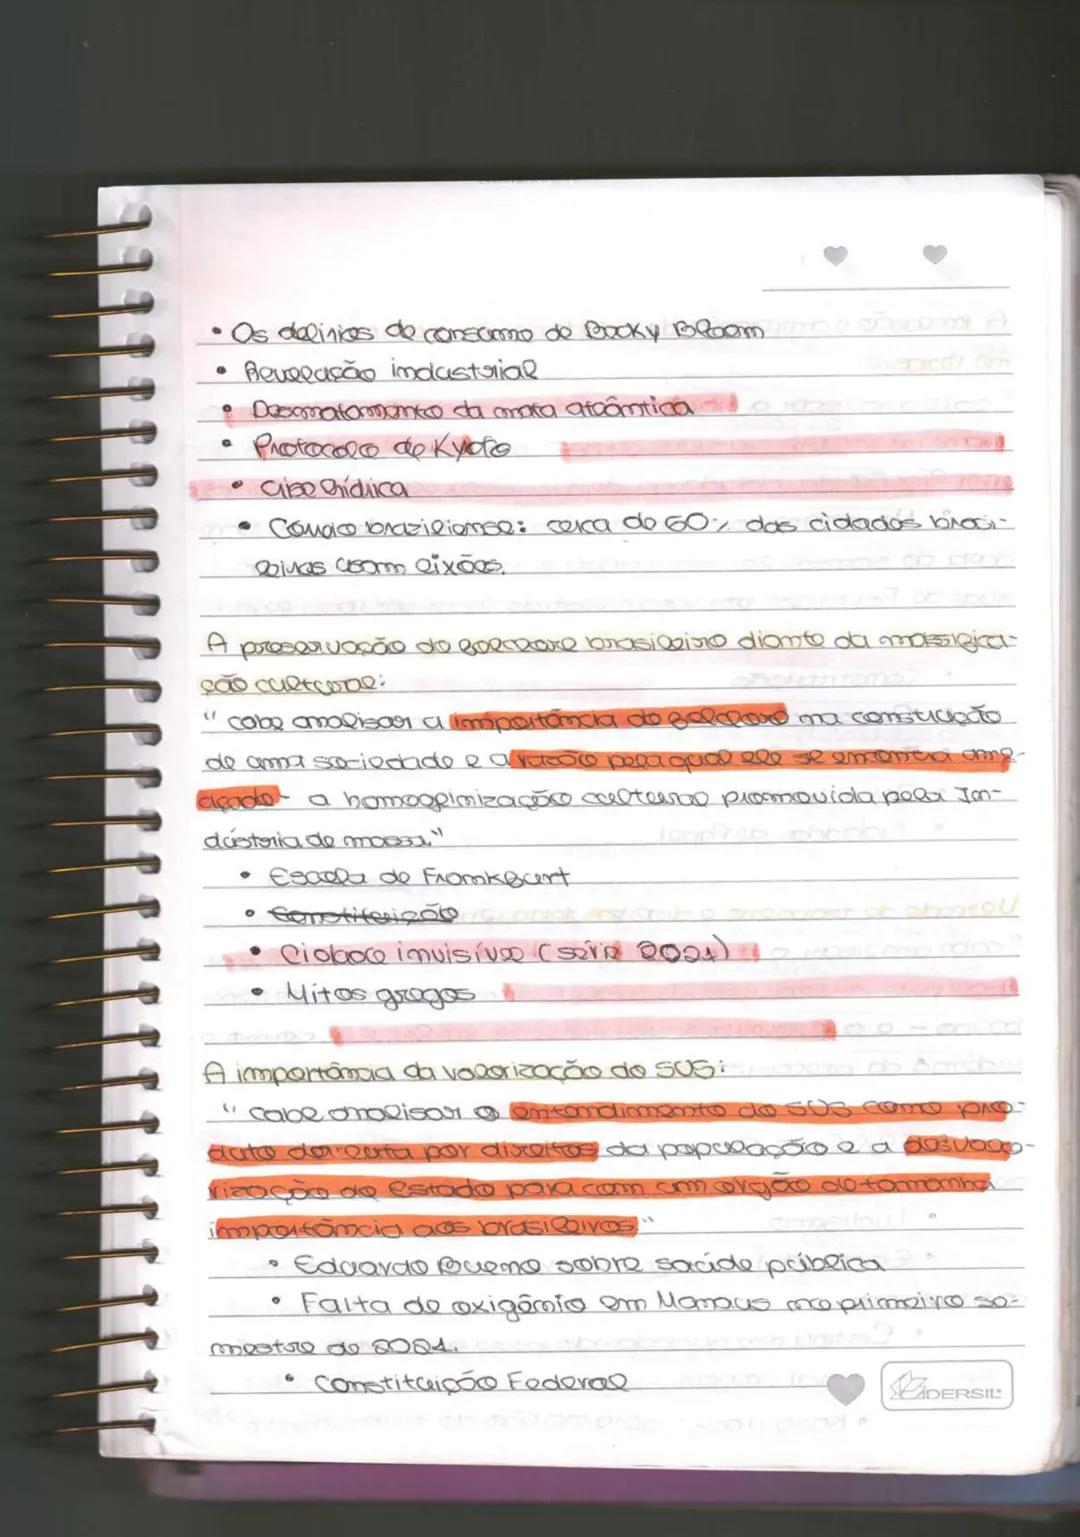 • Os delírios de consumo de Becky Bloom
• Revolução industrial
• Desmatamento da mata atlântica
• Protocolo de Kyoto
• Crise hídrica
• Correio braziliense: cerca de 60% das cidades brasi-
leiras usam lixões.
A preservação do folclore brasileiro diante da massifica-
ção cultural:
"cabe analisar a importância do folclore na construção
de uma sociedade e a razão pela qual ele se encontra ame-
açado - a homogeinização cultural promovida pela In-
dústria de massa."
• Escola de Frankfurt
• Constituição
• Cidade invisível (série 2021)
• Mitos gregos
A importância da valorização do SUS:
"cabe analisar o entendimento do SUS como pro-
duto da luta por direitos da população e a desvalo-
rização do Estado para com um órgão de tamanha
importância aos brasileiros."
• Eduardo Bueno sobre saúde pública
• Falta de oxigênio em Manaus no primeiro se-
mestre de 2021.
• Constituição Federal
ADERSIL